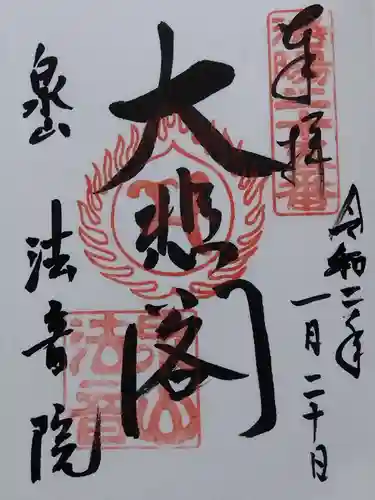 奉拝
令和二年
一月二十日
大悲閣
泉山
法音院